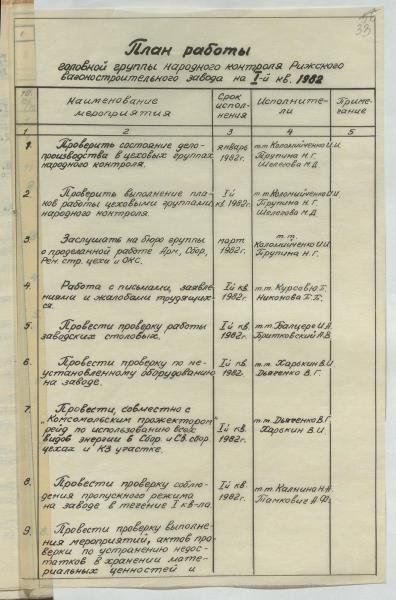 33
План работы
головной группы народного контроля Рижского
вагоностроительного завода на I-й кв. 1982
Наименование мероприятия
Срок исполнения
Исполнители
Примечание
1 2 3 4 5
1. Проверить состояние дело-
производства в цеховых группах
народного контроля.
январь
1982г.
т.т. Коломийченко И.И.
Трупина Н.Г.
Шелегова М.Д.
2. Проверить выполнение пла-
нов работы цеховыми группами
народного контроля.
I й
кв 1982г.
т.т. Коломийченко И.И.
Трупина Н.Г.
Шелегова М.Д
3. Заслушать на бюро группы
о проделанной работе Арм., Сбор,
Рем. стр. цехи и ОКС.
март
1982г.
т.т.
Коломийченко И.И
Трупина Н.Г.
4. Работа с письмами, заявле-
ниями и жалобами трудящих-
ся.
I й кв.
1982г.
т.т. Курсов Ю.Г.
Никонова Г.Б.
5. Провести проверку работы
заводских столовых.
I й кв
1982г.
т.т. Балцере И.А.
Бритковский А.В.
6. Провести проверку по не-
установленному оборудованию
на заводе.
I й кв.
1982.
т.т. Харокин В.И
Дьяченко В.Г.
7. Провести, совместно с
"Комсомольским прожектором"
рейд по использованию всех
видов энергии в Сбор. и Св. сбор.
цехах и КЗ участке.
I й кв.
1982г.
т.т. Дьяченко В.Г
Харокин В.И.
8. Провести проверку соблю-
дения пропускного режима
на заводе в течение I кв-ла.
I й кв.
1982г.
т.т. Калнина Н.А.
Тамкович А.Ф.
9. Провести проверку выполне-
ния мероприятий, актов про-
верки по устранению недос-
татков в хранении матери-
альных ценностей и